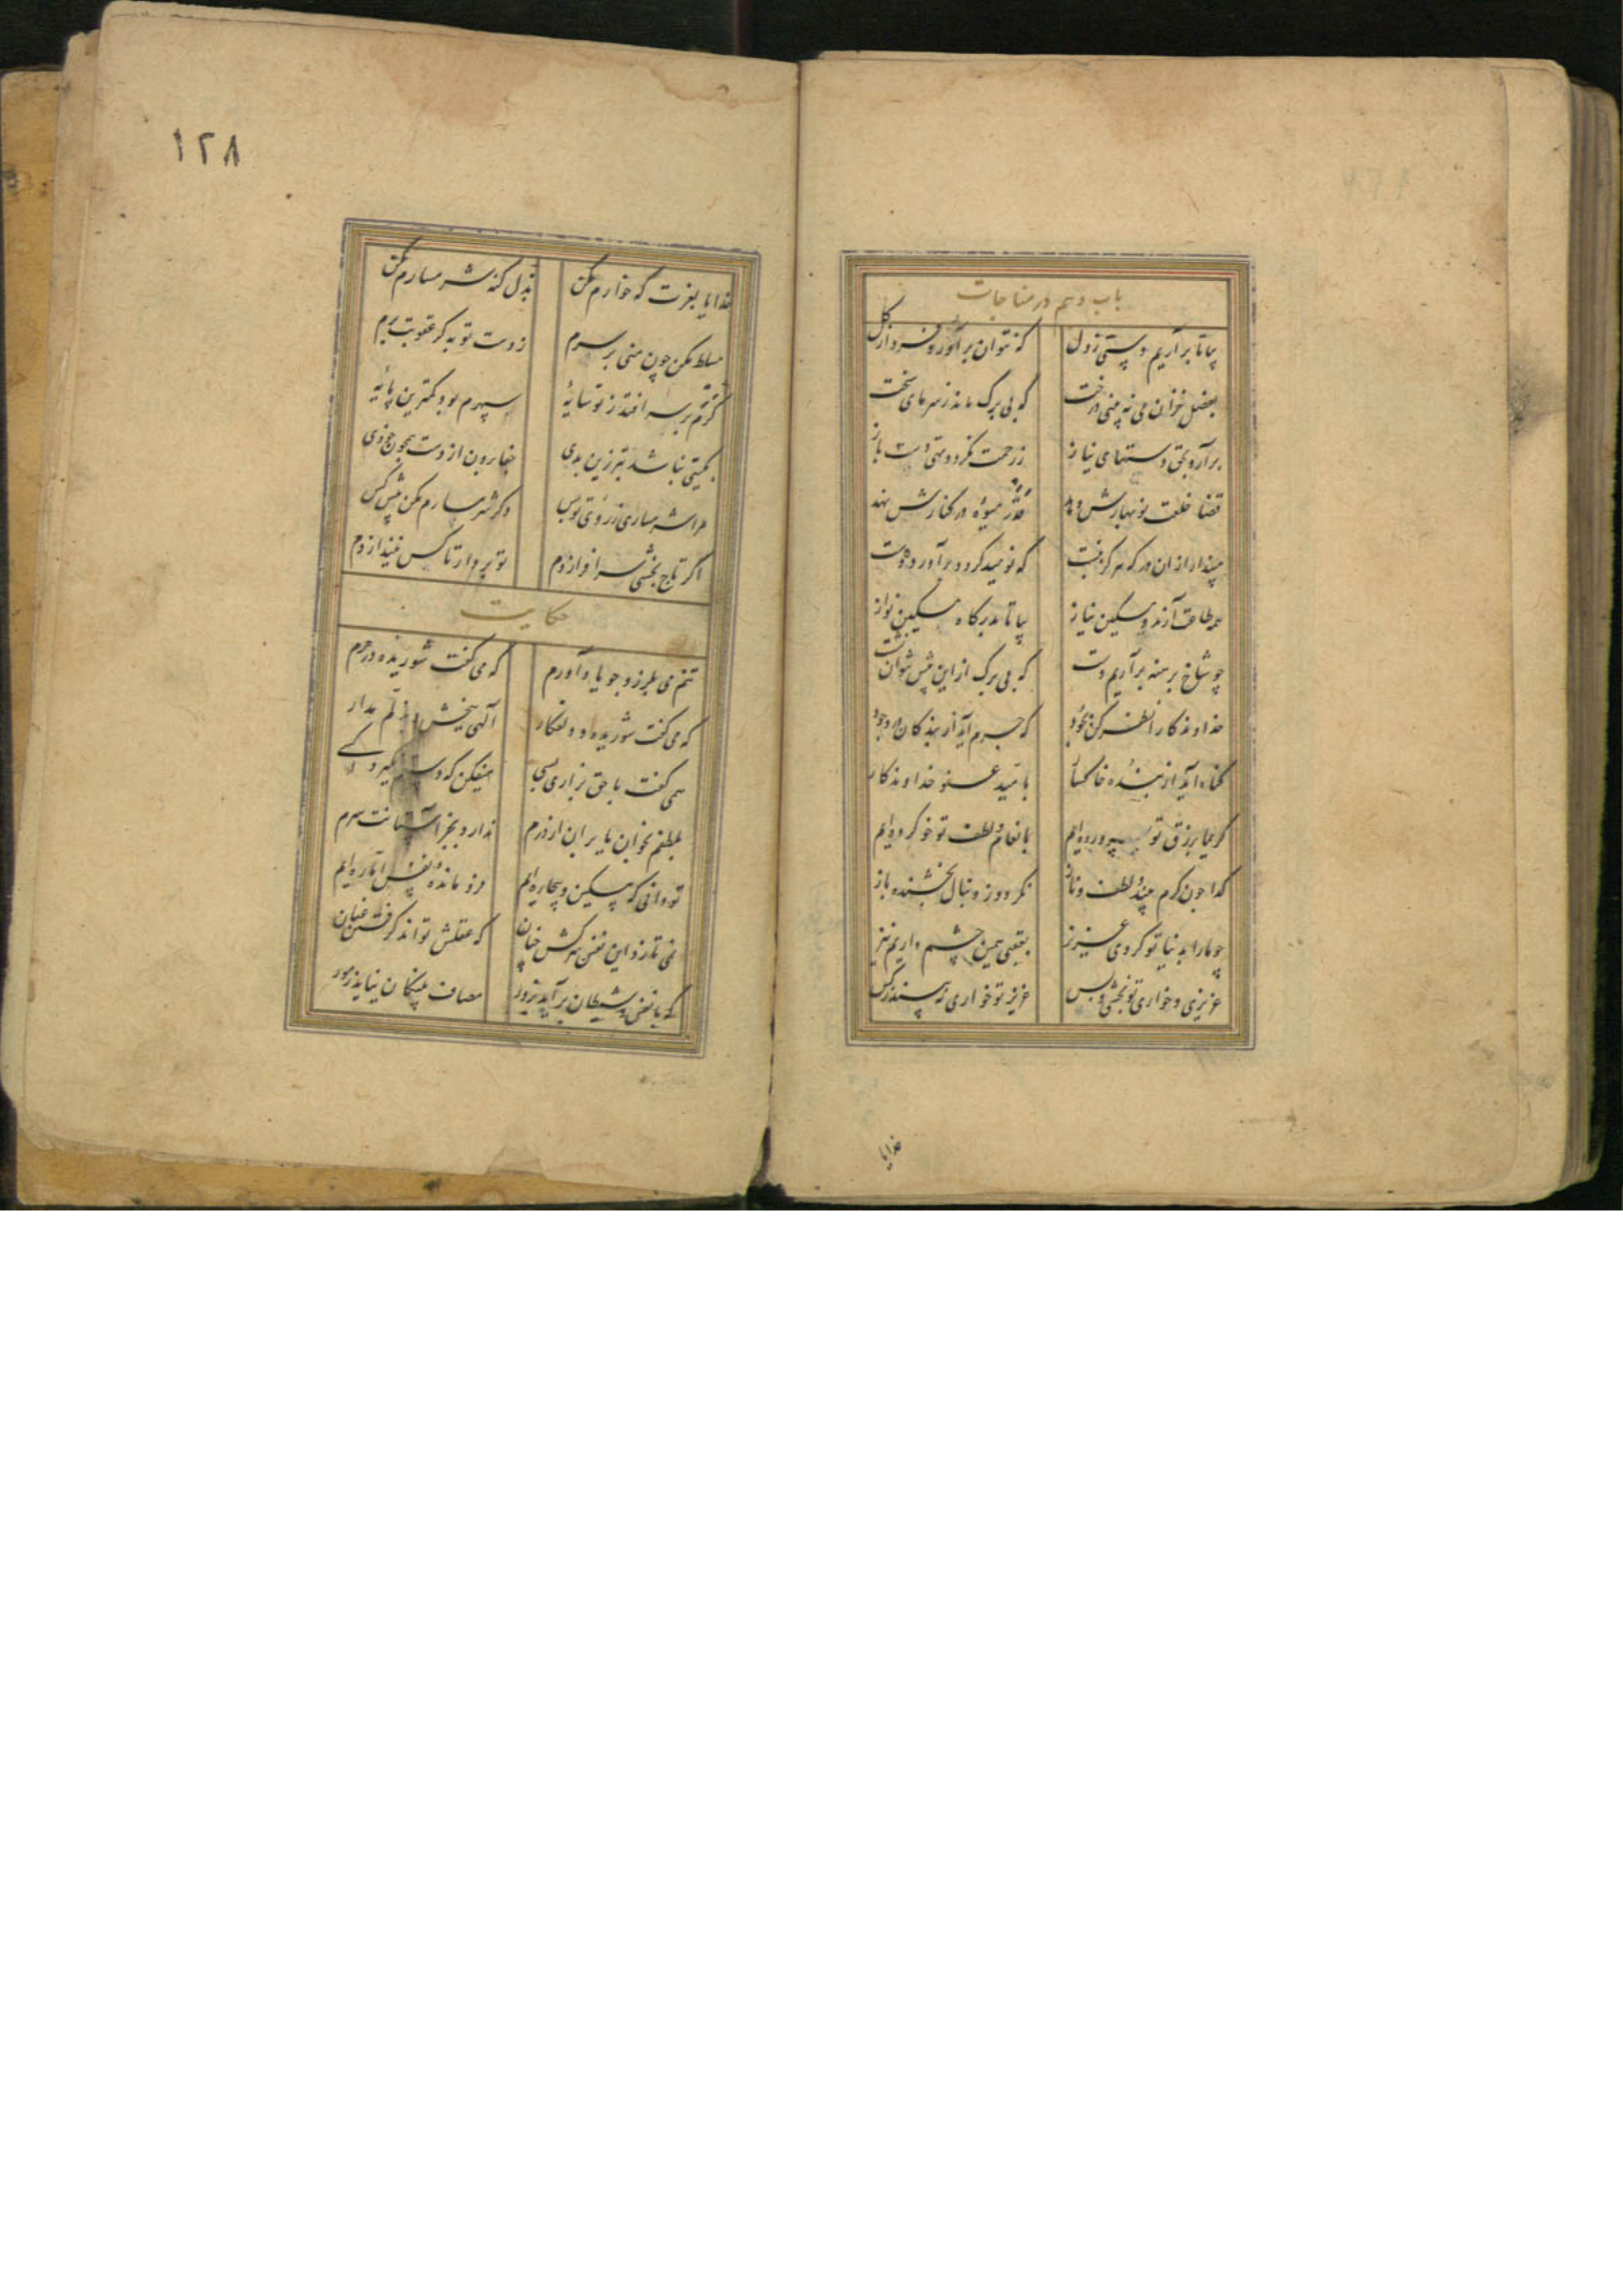 باب دهم در مناجات
بیا تا برآریم دستی ز دل که نتوان برآورد فردا ز گل
بفصل خزان می نه بینی درخت که بی برگ ماند ز سرمای سخت
برآرد بحق دستهای نیاز ز رحمت نگردد تهی دست باز
قضا خلعت نوبهارش دهد قدر میوه در کنارش نهد
مپندار ازان در که هرگز نبست که نومید گردد برآورده دست
همه طاعت آرند و مسکین نیاز بیا تا بدرگاه مسکین نواز
چو شاخ برهنه برآریم دست که بی برگ ازین بیش نتوان نشست
خداوندگارا نظر کن بجود که جرم آید از بندگان در وجود
گناه آید از بنده خاکسار بامید عفو خداوندگار
کریما برزق تو پرورده ایم بانعام و لطف تو خو کرده ایم
گدا چون کرم بیند و لطف و ناز نگردد ز دنبال بخشنده باز
چو ما را به دنیا تو کردی عزیز بعقبی همین چشم داریم نیز
عزیزی و خواری تو بخشی و بس عزیز تو خواری نه بیند ز کس
خدایا
۱۲۸
خدایا بعزت که خوارم مکن بذل گنه شرمسارم مکن
مسلط مکن چون منی بر سرم ز دست تو به گر عقوبت برم
گرم بر سر افتد ز تو سایهٔ سپهرم بود کمترین پایهٔ
بگیتی نباشد بتر زین بدی جفا بردن از دست همچون خودی
مرا شرمساری ز روی تو بس دگر شرمسارم مکن پیش کس
اگر تاج بخشی سرافرازدم تو بردار تا کس نیندازدم
حکایت
تنم می بلرزد چو یاد آورم که می گفت شوریده در حرم
که می گفت شوریده دلفگار الهی ببخش و بذلم مدار
همی گفت با حق بزاری بسی میفکن که دستم نگیرد کسی
بلطفم بخوان یا بران از درم ندارد بجز آستانت سرم
تو دانی که مسکین و بیچاره ایم فرو مانده نفس اماره ایم
نمی تازد این نفس سرکش چنان که عقلش تواند گرفتن عنان
که با نفس و شیطان برآید بزور مصاف پلنگان نیاید ز مور